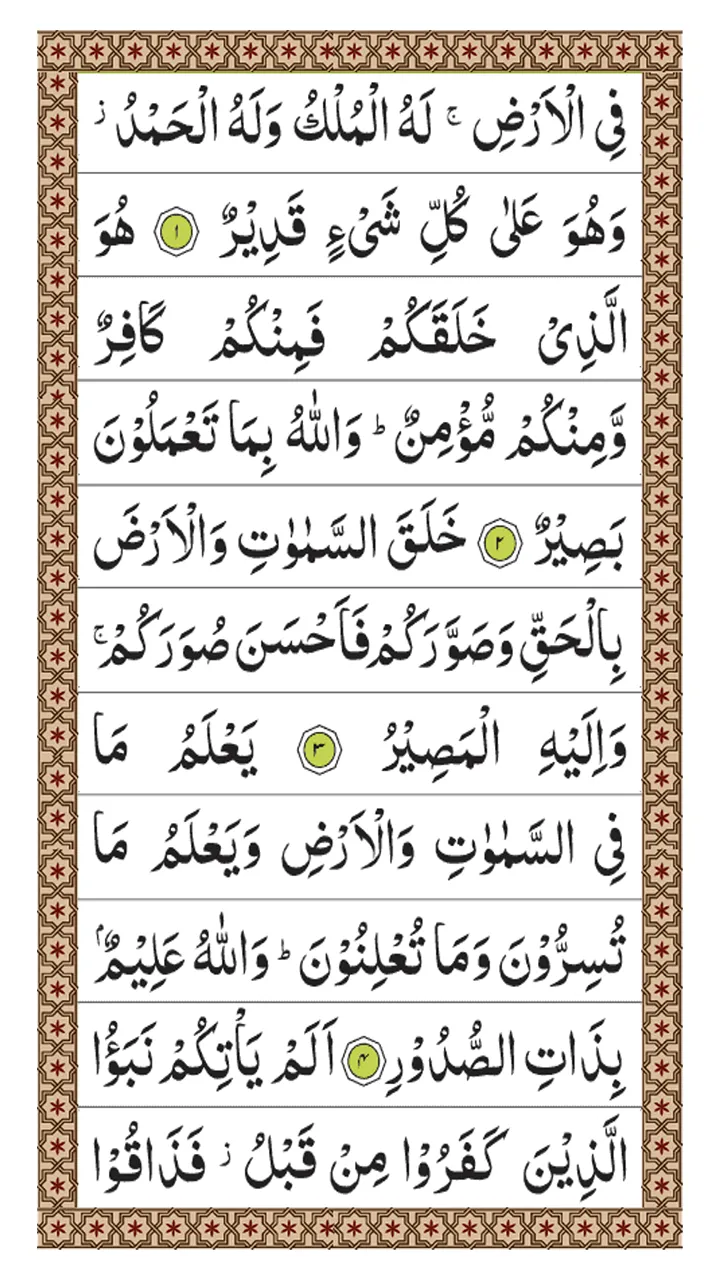 فِی الْاَرْضِ ۚ لَهُ الْمُلْكُ وَلَهُ الْحَمْدُ ؗ
وَهُوَ عَلٰی كُلِّ شَیْءٍ قَدِیْرٌ ﴿۱﴾ هُوَ
الَّذِیْ خَلَقَكُمْ فَمِنْكُمْ كَافِرٌ
وَّمِنْكُمْ مُّؤْمِنٌ ؕ وَاللّٰهُ بِمَا تَعْمَلُوْنَ
بَصِیْرٌ ﴿۲﴾ خَلَقَ السَّمٰوٰتِ وَالْاَرْضَ
بِالْحَقِّ وَصَوَّرَكُمْ فَاَحْسَنَ صُوَرَكُمْ ۚ
وَاِلَیْهِ الْمَصِیْرُ ﴿۳﴾ یَعْلَمُ مَا
فِی السَّمٰوٰتِ وَالْاَرْضِ وَیَعْلَمُ مَا
تُسِرُّوْنَ وَمَا تُعْلِنُوْنَ ؕ وَاللّٰهُ عَلِیْمٌۢ
بِذَاتِ الصُّدُوْرِ ﴿۴﴾ اَلَمْ یَاْتِكُمْ نَبَؤُا
الَّذِیْنَ كَفَرُوْا مِنْ قَبْلُ ؗ فَذَاقُوْا